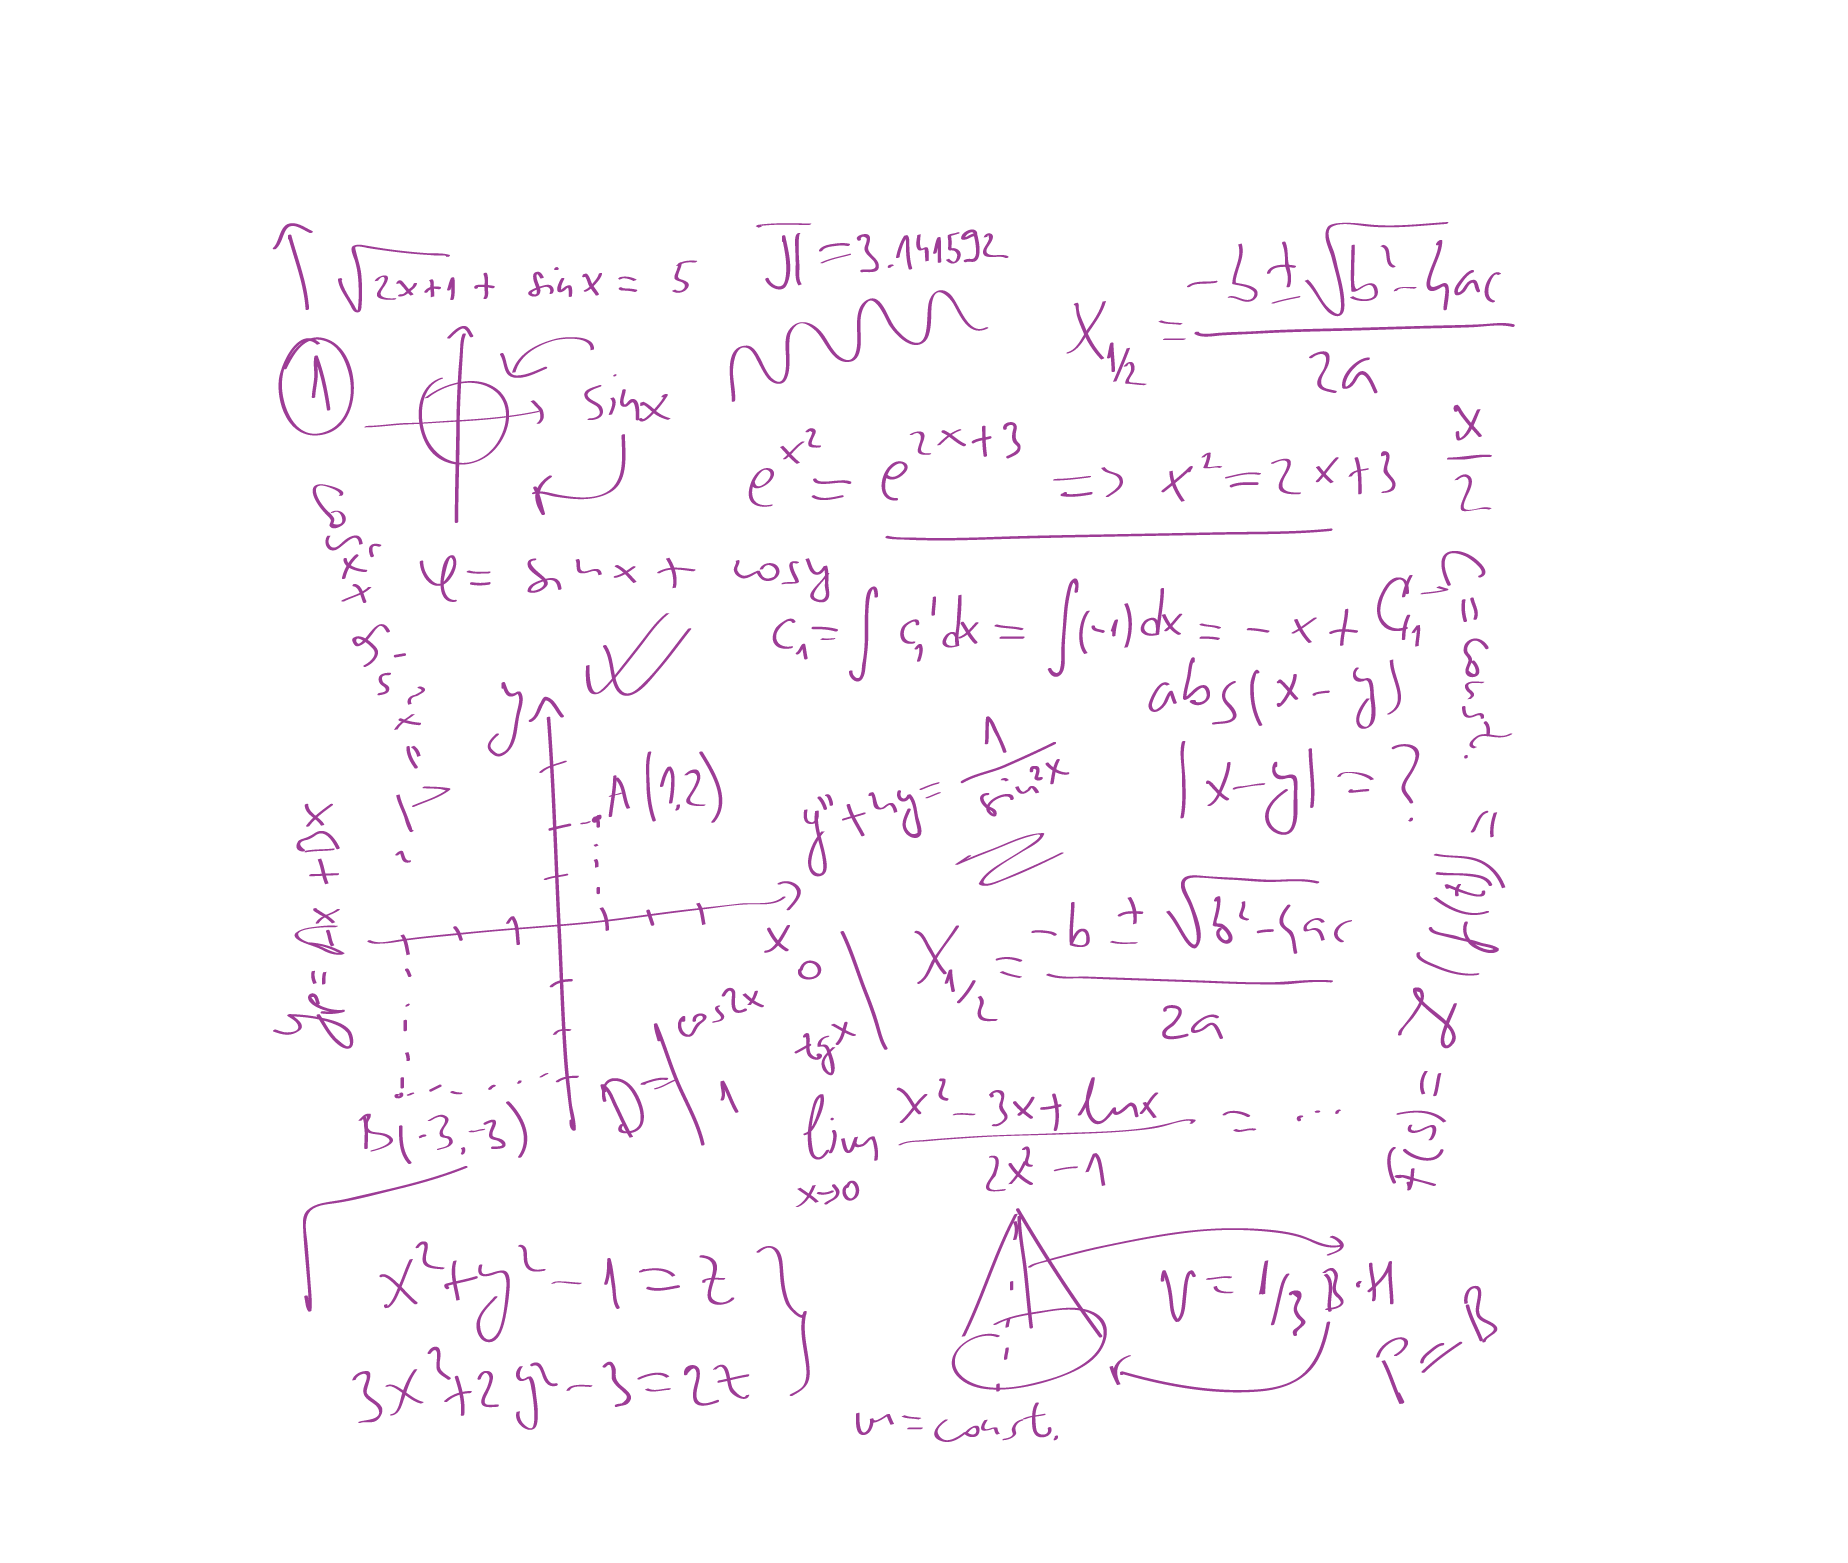 √2x+1 + sinx = 5
π = 3.141592
x1/2 = (-b ± √b²-4ac) / 2a
1
sinx
e^x² = e^2x+3 => x² = 2x+3
x/2
φ = sinx + cosy
C₁ = ∫ C₁' dx = ∫(-1)dx = -x + C₁
C = const.
abs(x-y)
|x-y| = ?
y
A(1,2)
y'' + 4y = 1 / sin2x
yp = Ax + Dx
x
0
x1/2 = (-b ± √b²-4ac) / 2a
D = | cos2x tgx
1 |
B(-3,-3)
lim x→0 (x² - 3x + lnx) / (2x² - 1) = ...
x² + y² - 1 = z
3x² + 2y² - 3 = 2z
V = 1/3 B·H
P = B
m = const.